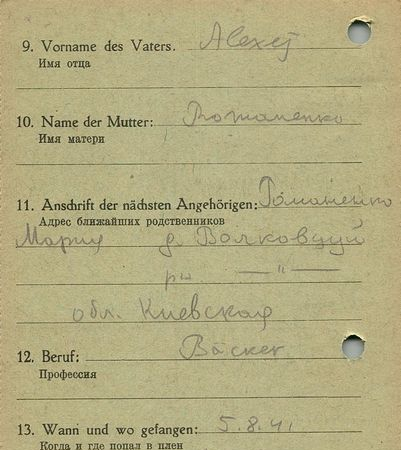 9. Vorname des Vaters. Alexej
Имя отца
10. Name der Mutter: Romanenko
Имя матери
11. Anschrift der nächsten Angehörigen: Романенко
Адрес ближайших родственников
Мария д.
рн — " —
обл. Киевская
12. Beruf: Bäcker
Профессия
13. Wann und wo gefangen: 5.8.41.
Когда и где попал в плен